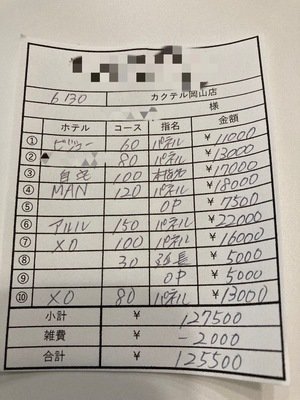 6/30 カクテル岡山店
様
ホテル コース 指名 金額
① ビジュー 60 パネル ¥11000
② 80 パネル ¥13000
③ 自宅 100 本指名 ¥17000
④ MAN 120 パネル ¥18000
⑤ OP ¥7500
⑥ アルル 150 パネル ¥22000
⑦ XO 100 パネル ¥16000
⑧ 30 延長 ¥5000
⑨ OP ¥5000
⑩ XO 80 パネル ¥13000
小計 ¥ 127500
雑費 ¥ -2000
合計 ¥ 125500